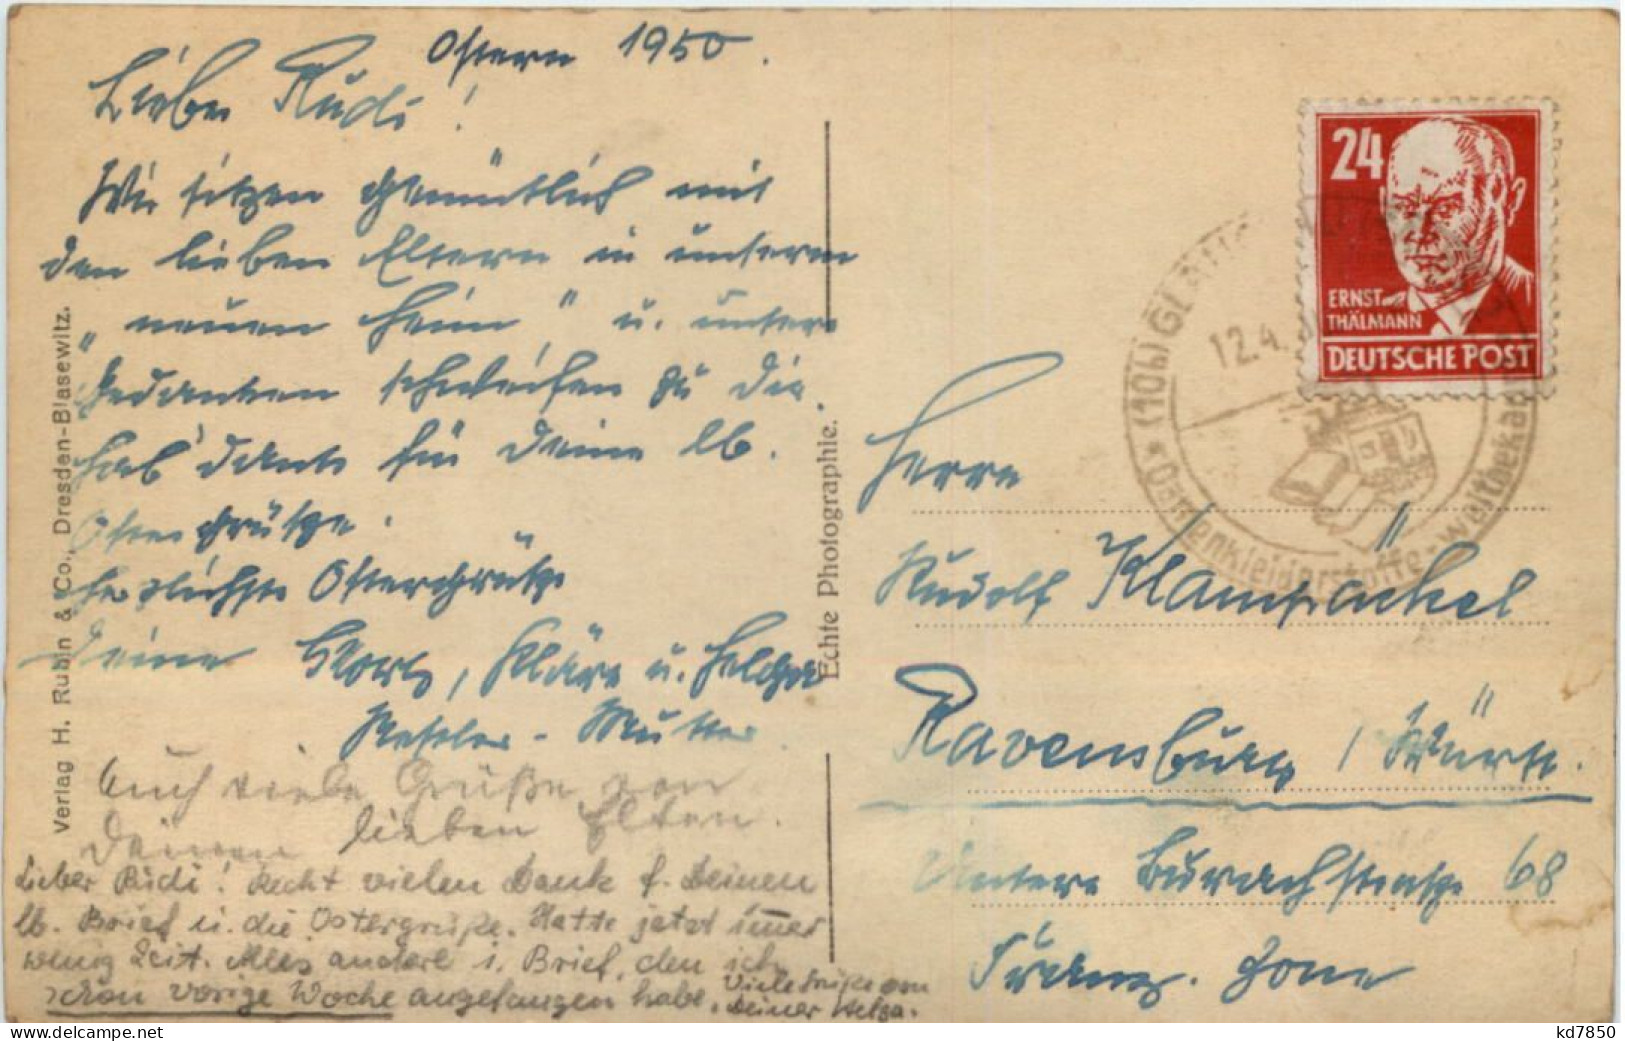 Ostern 1950.
Lieber Rudi!
Wir sitzen gemütlich mit
den lieben Eltern in unserem
"neuen Heim" u. unsere
Gedanken schweifen zu Dir.
Hab' Dank für Deine lb.
Ostergrüße.
Herzlichste Ostergrüße
Deine Kläre u. Helga
Mutter
Auch viele Grüße von
Deinen lieben Eltern.
Lieber Rudi! Recht vielen Dank f. Deinen
lb. Brief u. die Ostergrüße. Hatte jetzt immer
wenig Zeit. Alles andere i. Brief, den ich
schon vorige Woche angefangen habe. Viele Grüße von
Deiner Helga.
Verlag H. Rubin & Co., Dresden-Blasewitz.
Echte Photographie.
24
ERNST
THÄLMANN
DEUTSCHE POST
(10b) GLAUCHAU
12.4.
Damenkleiderstoffe
Herrn
Rudolf
Ravensburg / Württ.
Untere Burachstraße 68
Franz. Zone
kd7850